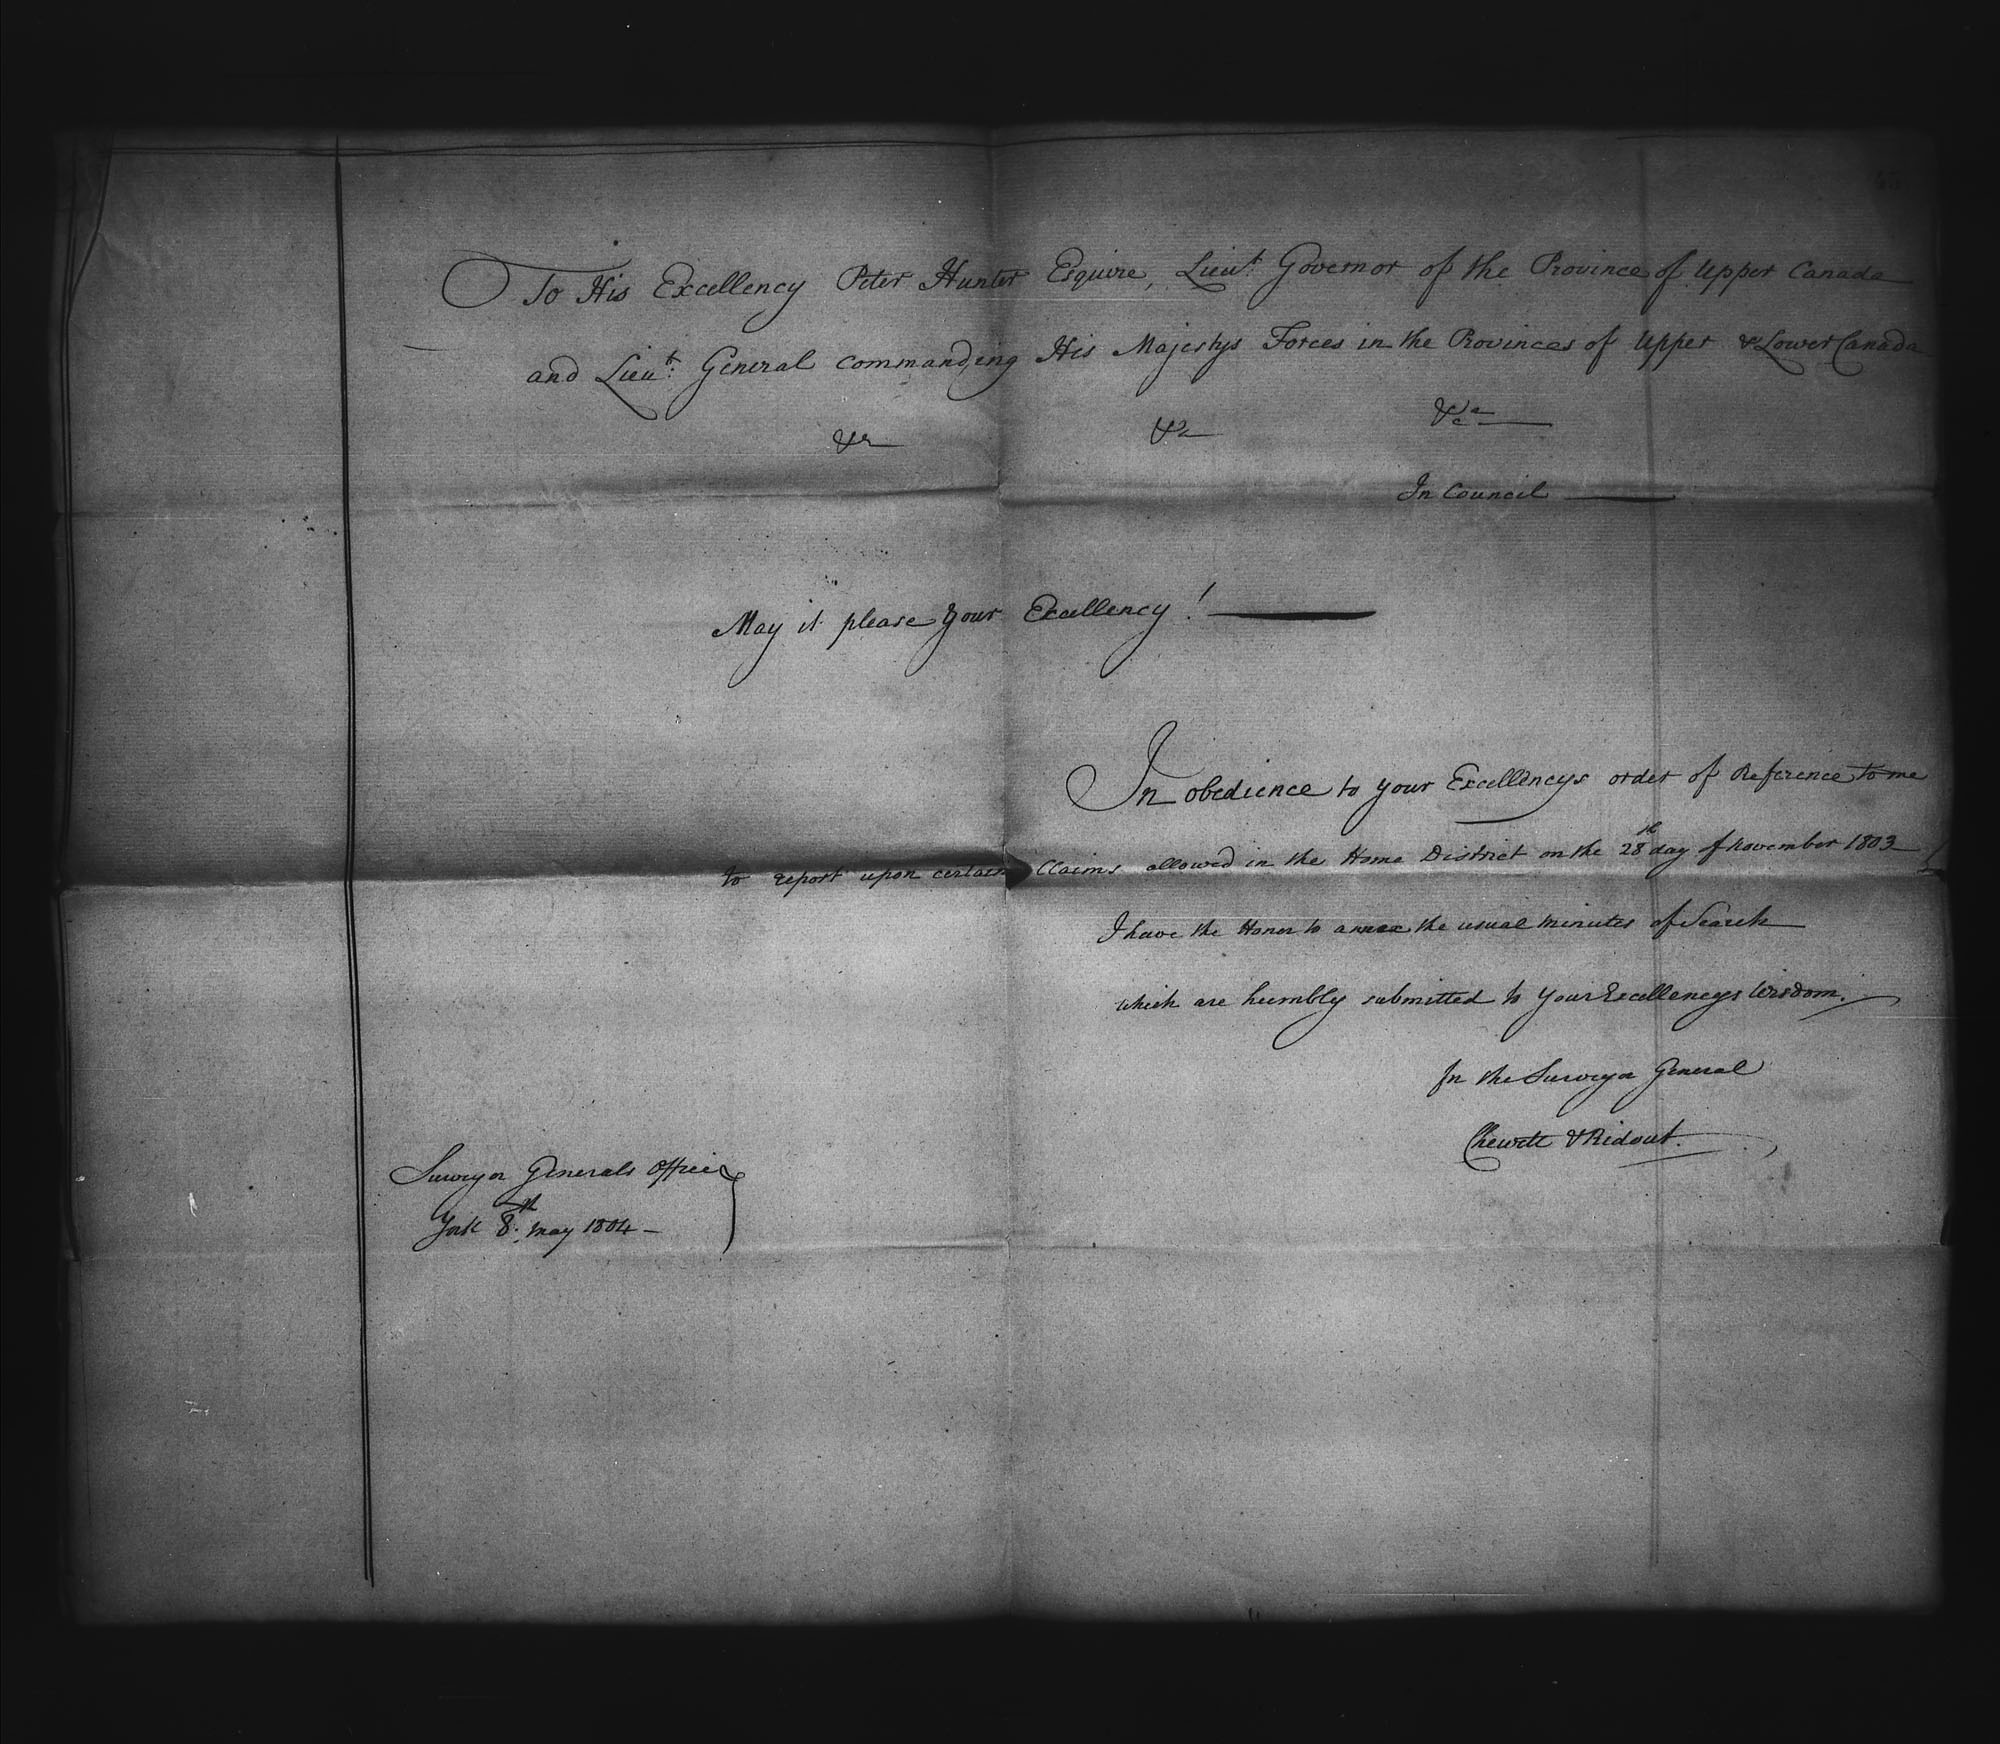 To His Excellency Peter Hunter Esquire, Lieut. Governor of the Province of Upper Canada
and Lieut. General commanding His Majestys Forces in the Provinces of Upper & Lower Canada
&c &c &ca
In Council
May it please Your Excellency!
In obedience to your Excellencys order of Reference to me
to report upon certain Claims allowed in the Home District on the 28th day of November 1803
I have the Honor to annex the usual minutes of Search
which are humbly submitted to Your Excellencys Wisdom.
For the Surveyor General
Chewett & Ridout.
Surveyor Generals Office
York 8th. May 1804